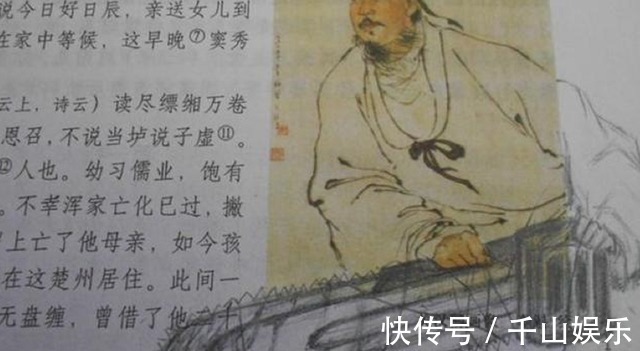 说今日好日辰，亲送女儿到
在家中等候，这早晚⑦窦秀
云上，诗云）读尽缥缃万卷
恩召，不说当垆说子虚⑪。
⑫人也。幼习儒业，饱有
。不幸浑家亡化已过，撇
上亡了他母亲，如今孩
在这楚州居住。此间一
无盘缠，曾借了他二十
快传号／千山娱乐